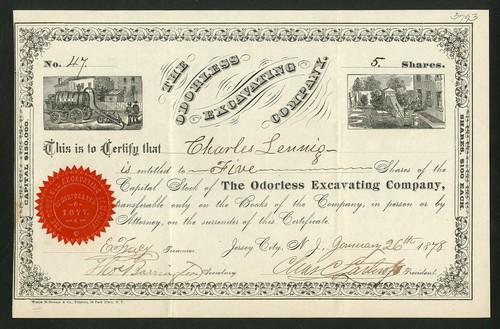 3793
No. 47
THE
ODORLESS
EXCAVATING
COMPANY.
5 Shares.
This is to Certify that Charles Lennig
is entitled to Five Shares of the
Capital Stock of The Odorless Excavating Company,
transferable only on the Books of the Company, in person or by
Attorney, on the surrender of this Certificate.
Jersey City, N. J. January 26th 1878
Treasurer
Secretary
President
CAPITAL $150,000.
SHARES, $100 EACH
EXCAVATING
INCORPORATED
1877.